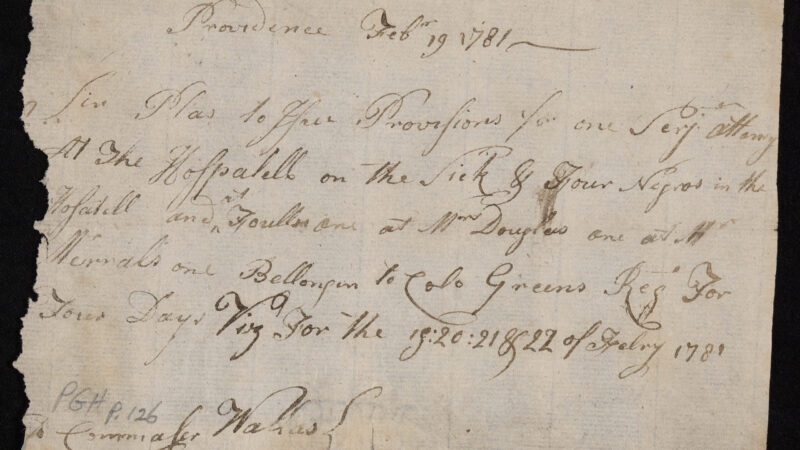 Providence Febr 19 1781
Sir Plas to Isue Provisions for one Serjt atteny
At The Hospatell on the Sick & Four Negros in the
Hosatell and at Foulls one at Mrs Douglas one at Mr
Merrals one Bellongin to Colo Greens Regt For
Four Days Viz For the 19:20:21&22 of Febry 1781
PGH p.126
To Commaser Wallas